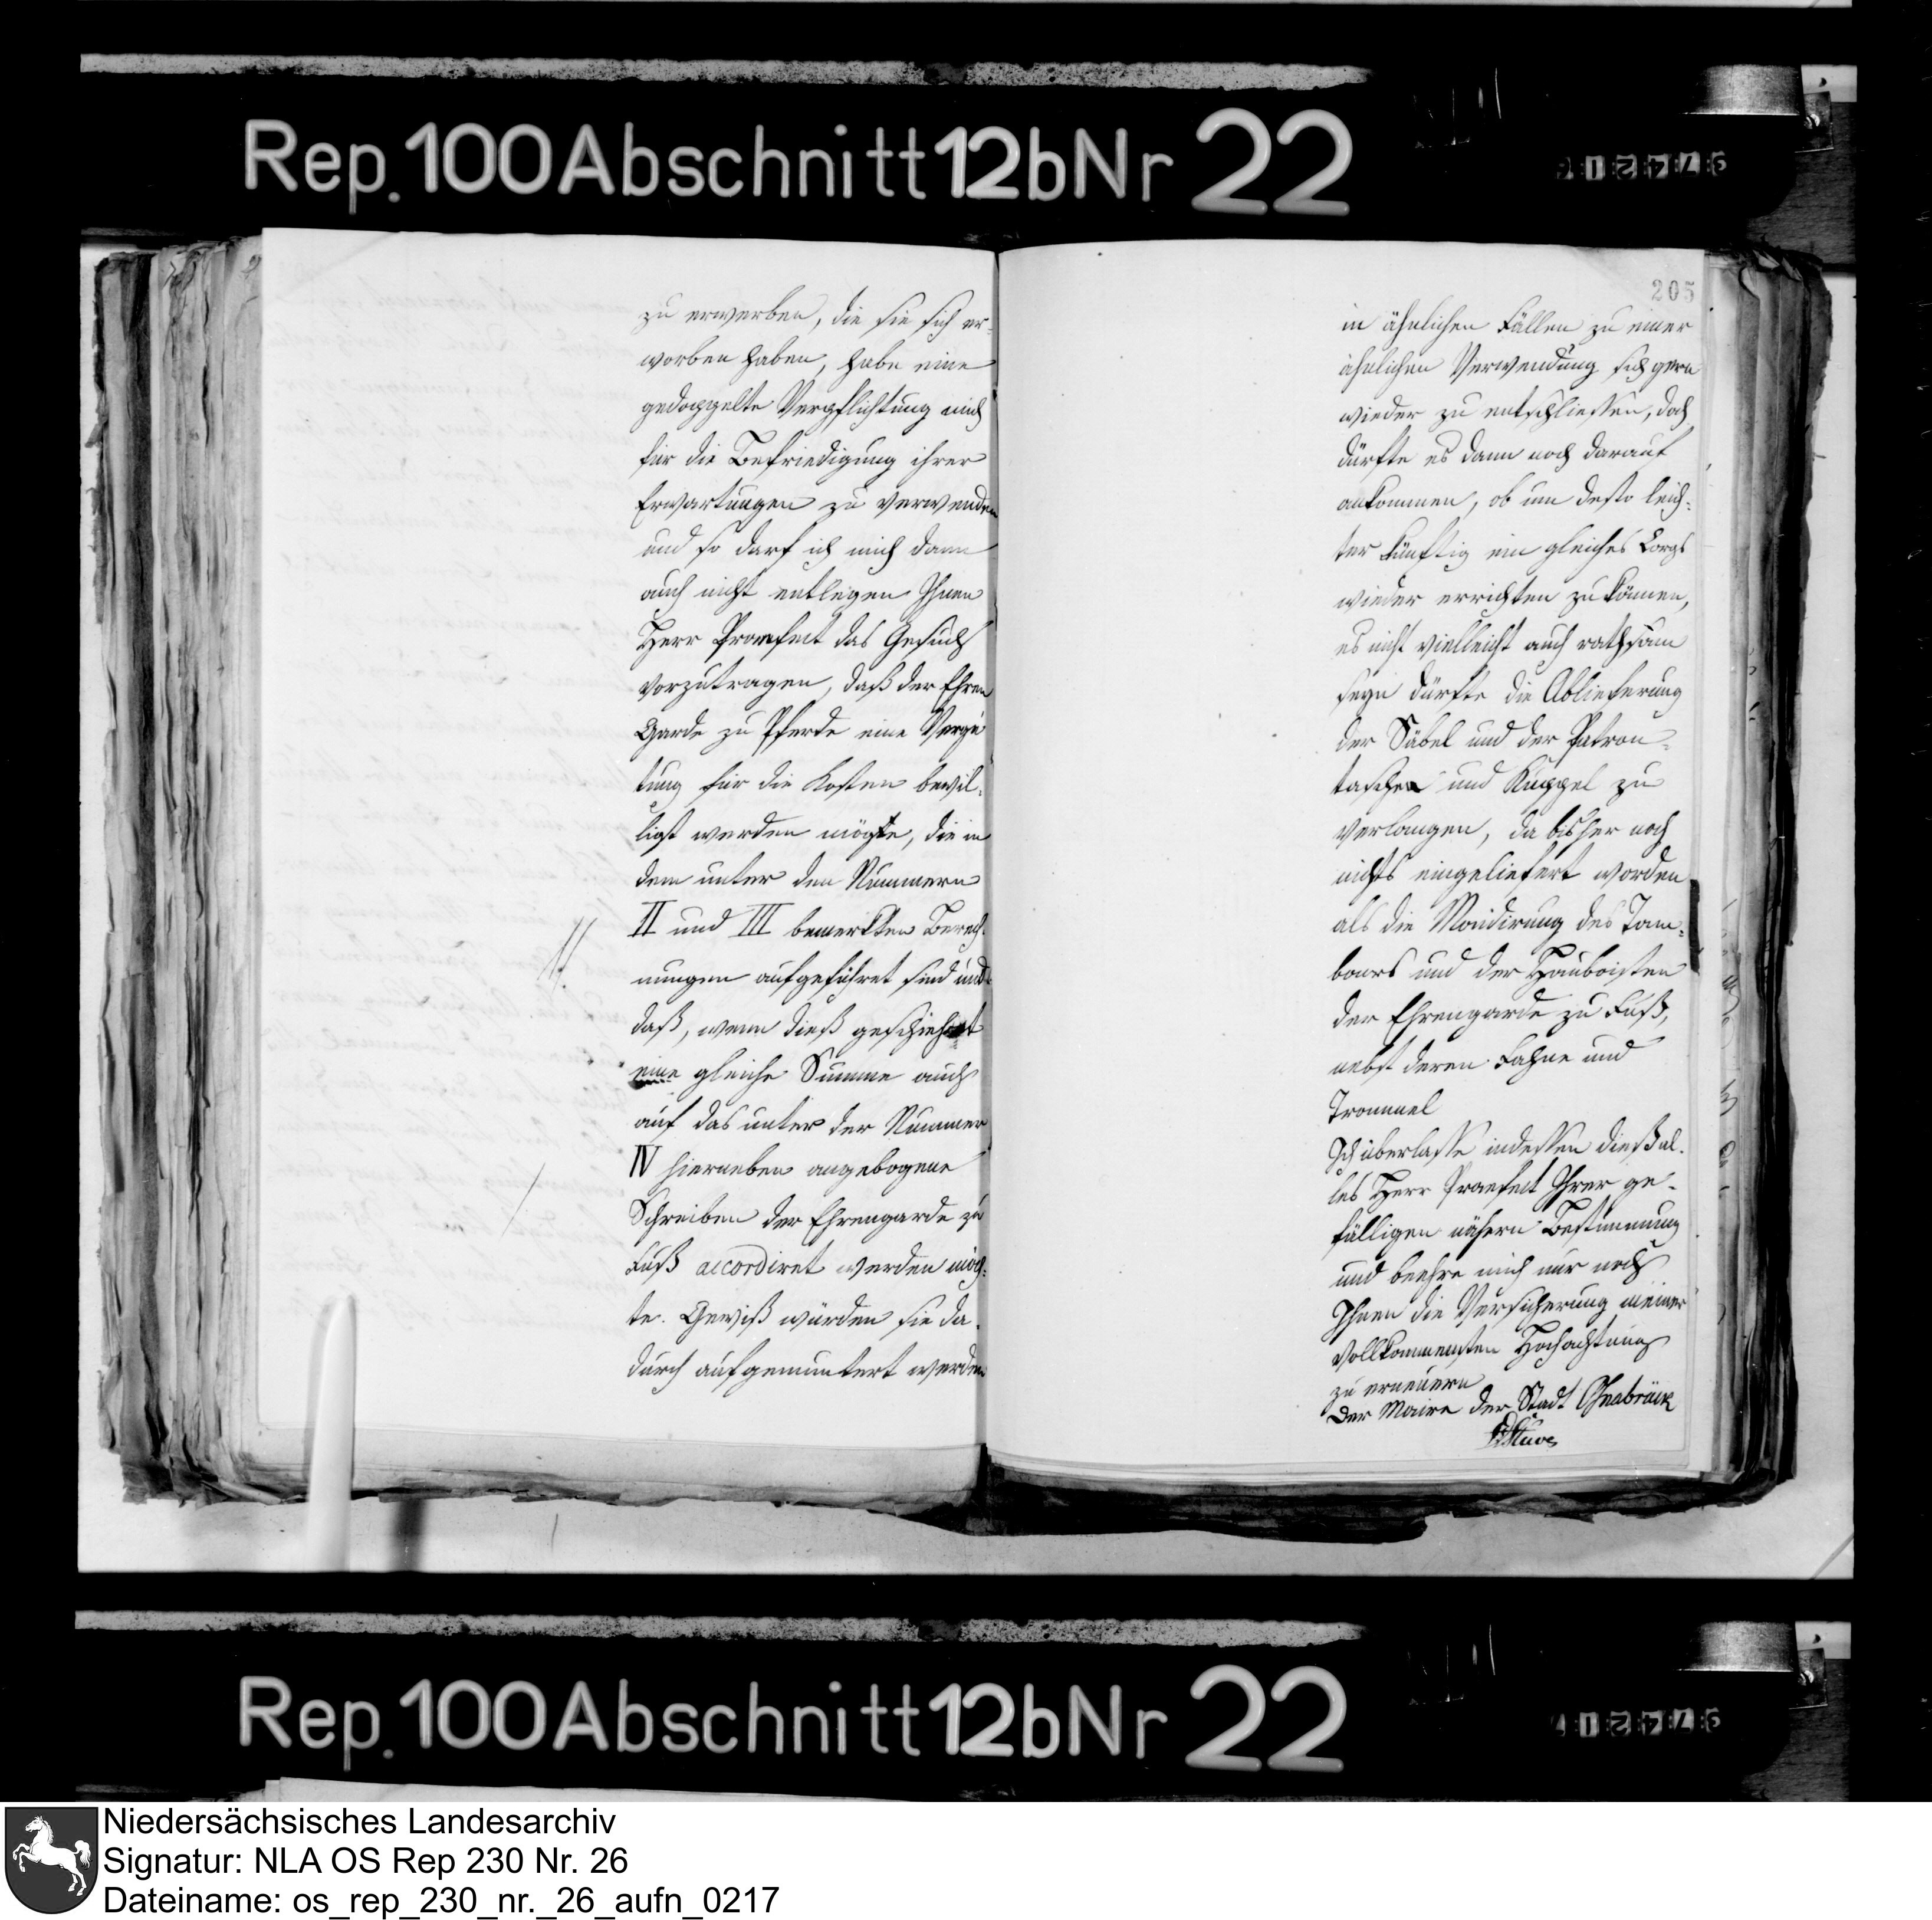 Rep. 100 Abschnitt 12b Nr 22
zu erwerben, die sie sich er-
worben haben, habe eine
gedoppelte Verpflichtung mich
für die Befriedigung ihrer
Erwartungen zu verwenden
und so darf ich mich dann
auch nicht entlegen Ihnen
Herr Praefect das Gesuch
vorzutragen, daß der Ehren
Garde zu Pferde eine Vergü
tung für die Kosten bewil-
ligt werden mögte, die in
dem unter den Nummern
II und III bemerkten Berech-
nungen aufgeführet sind und
daß, wenn dieß geschiehet
eine gleiche Summe auch
auf das unter der Nummer
IV hierneben angebogene
Schreiben der Ehrengarde zu
Fuß accordiret werden möch-
te. Gewiß würden sie da-
durch aufgemuntert werden
205
in ähnlichen Fällen zu einer
ähnlichen Verwendung sich gern
wieder zu entschliessen, doch
dürfte es dann noch darauf
ankommen, ob um desto leich-
ter künftig ein gleiches Corps
wieder errichten zu können,
es nicht vielleicht auch rathsam
seyn dürfte die Ablieferung
der Säbel und der Patron-
tasche und Kuppel zu
verlangen, da bisher noch
nichts eingeliefert worden
als die Mondirung des Tam-
bours und der Hauboisten
der Ehrengarde zu Fuß,
nebst deren Fahne und
Trommel
Ich überlasse indessen dieß al-
les Herr Praefect Ihrer ge-
fälligen nähern Bestimmung
und beehre mich nur noch
Ihnen die Versicherung meiner
vollkommensten Hochachtung
zu erneuern
Der Maire der Stadt Osnabrück
Stüve
Rep. 100 Abschnitt 12b Nr 22
Niedersächsisches Landesarchiv
Signatur: NLA OS Rep 230 Nr. 26
Dateiname: os_rep_230_nr._26_aufn_0217